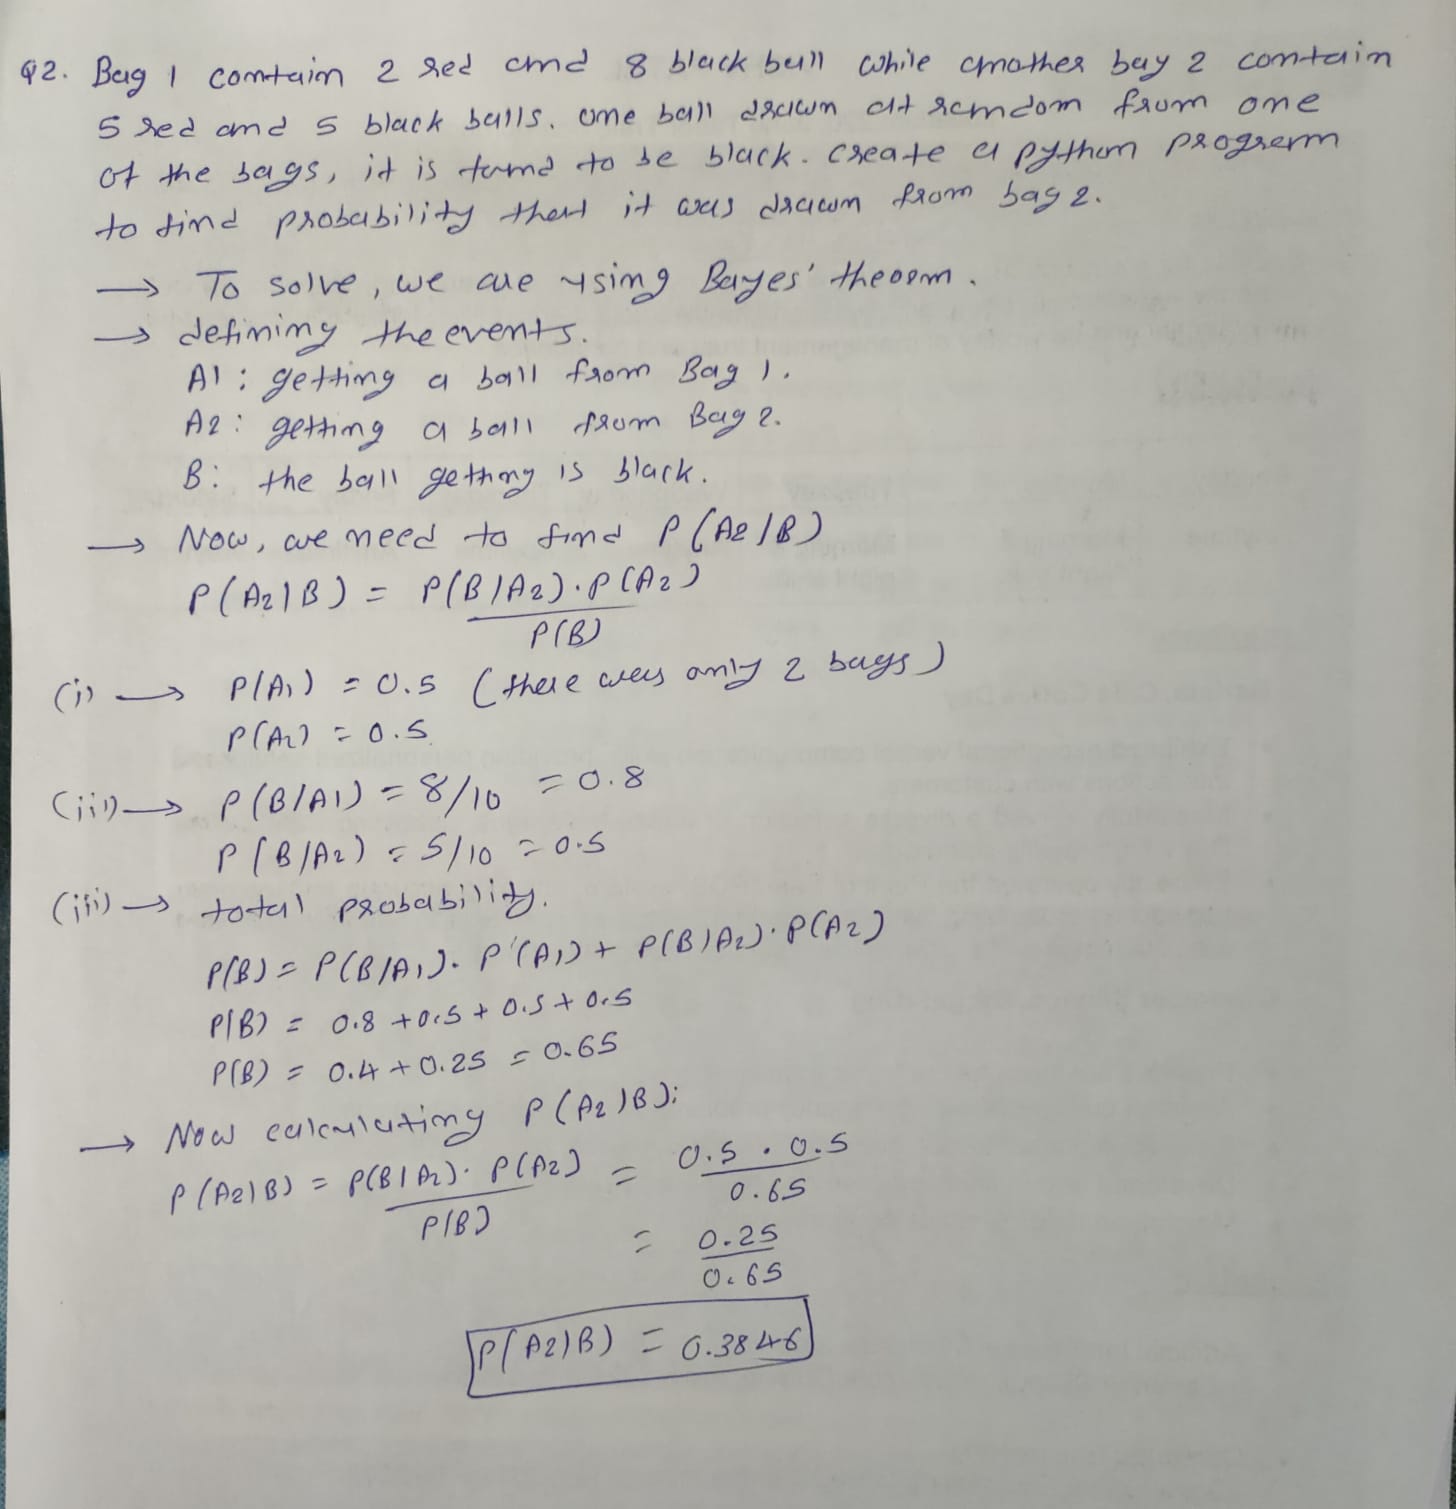 Q2. Bag 1 contain 2 red and 8 black ball while another bag 2 contain
5 red and 5 black balls. one ball drawn at random from one
of the bags, it is found to be black. create a python program
to find probability that it was drawn from bag 2.
→ To solve, we are using Bayes' theorm.
→ defining the events.
A1: getting a ball from Bag 1.
A2: getting a ball from Bag 2.
B: the ball getting is black.
→ Now, we need to find P(A2/B)
P(A2|B) = P(B/A2).P(A2)
P(B)
(i) → P(A1) = 0.5 (there was only 2 bags)
P(A2) = 0.5
(ii) → P(B/A1) = 8/10 = 0.8
P(B/A2) = 5/10 = 0.5
(iii) → total probability.
P(B) = P(B/A1). P(A1) + P(B/A2). P(A2)
P(B) = 0.8 + 0.5 + 0.5 + 0.5
P(B) = 0.4 + 0.25 = 0.65
→ Now calculating P(A2|B):
P(A2|B) = P(B|A2). P(A2) = 0.5 . 0.5
P(B) 0.65
= 0.25
0.65
P(A2|B) = 0.3846